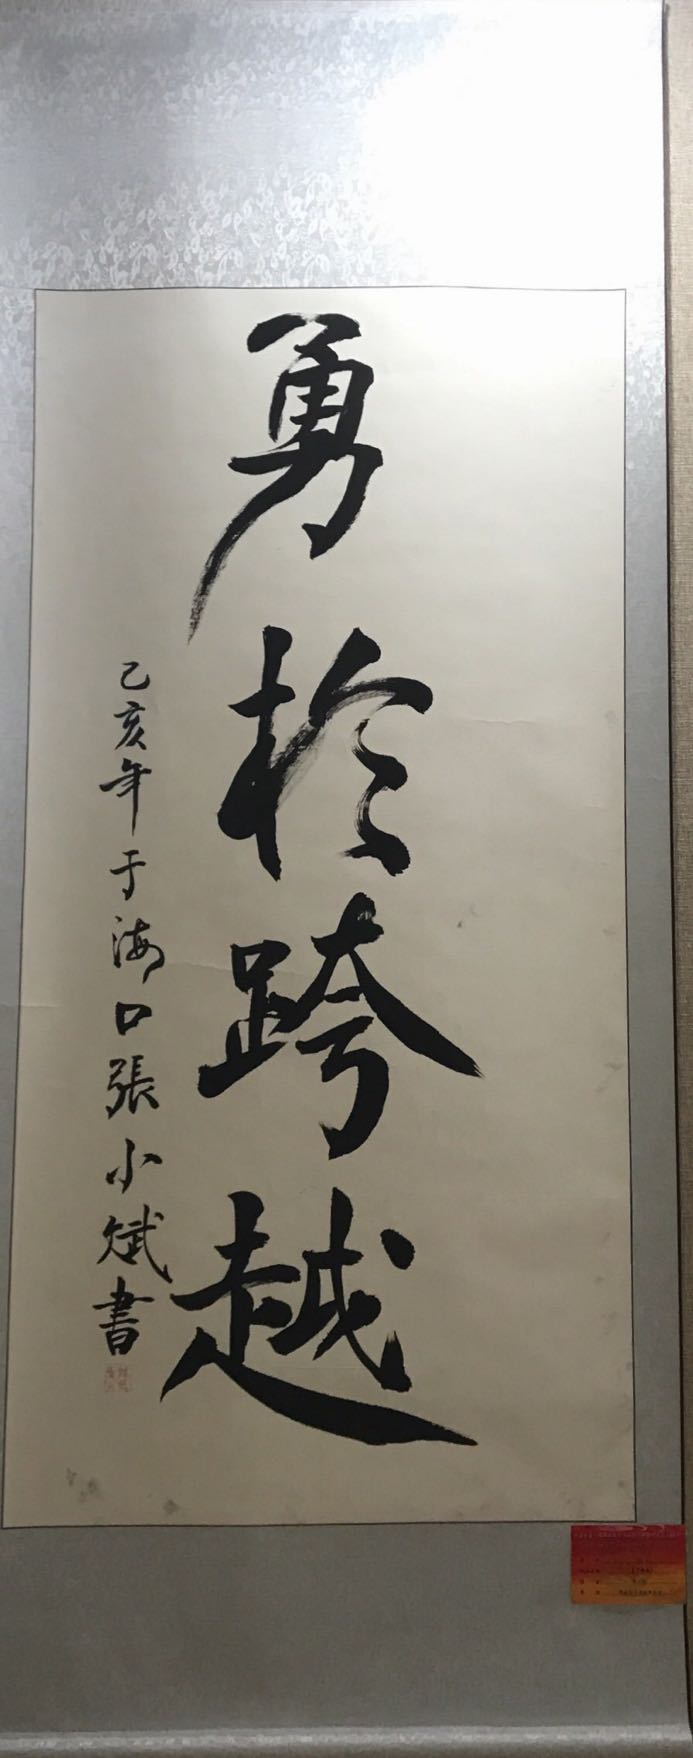 勇於跨越
己亥年于海口張小斌書